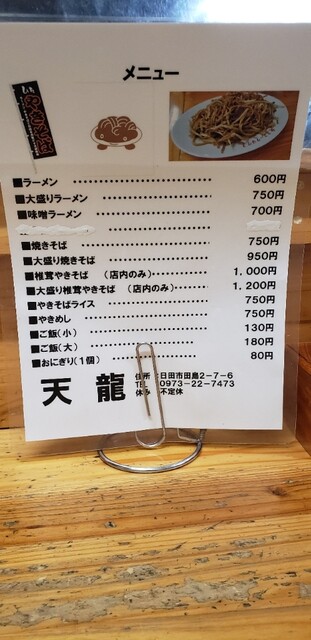 メニュー
やきそば
■ラーメン 600円
■大盛りラーメン 750円
■味噌ラーメン 700円
■焼きそば 750円
■大盛り焼きそば 950円
■椎茸やきそば (店内のみ) 1,000円
■大盛り椎茸やきそば (店内のみ) 1,200円
■やきそばライス 750円
■やきめし 750円
■ご飯(小) 130円
■ご飯(大) 180円
■おにぎり(1個) 80円
天龍
住所 日田市田島2-7-6
TEL 0973-22-7473
休み 不定休